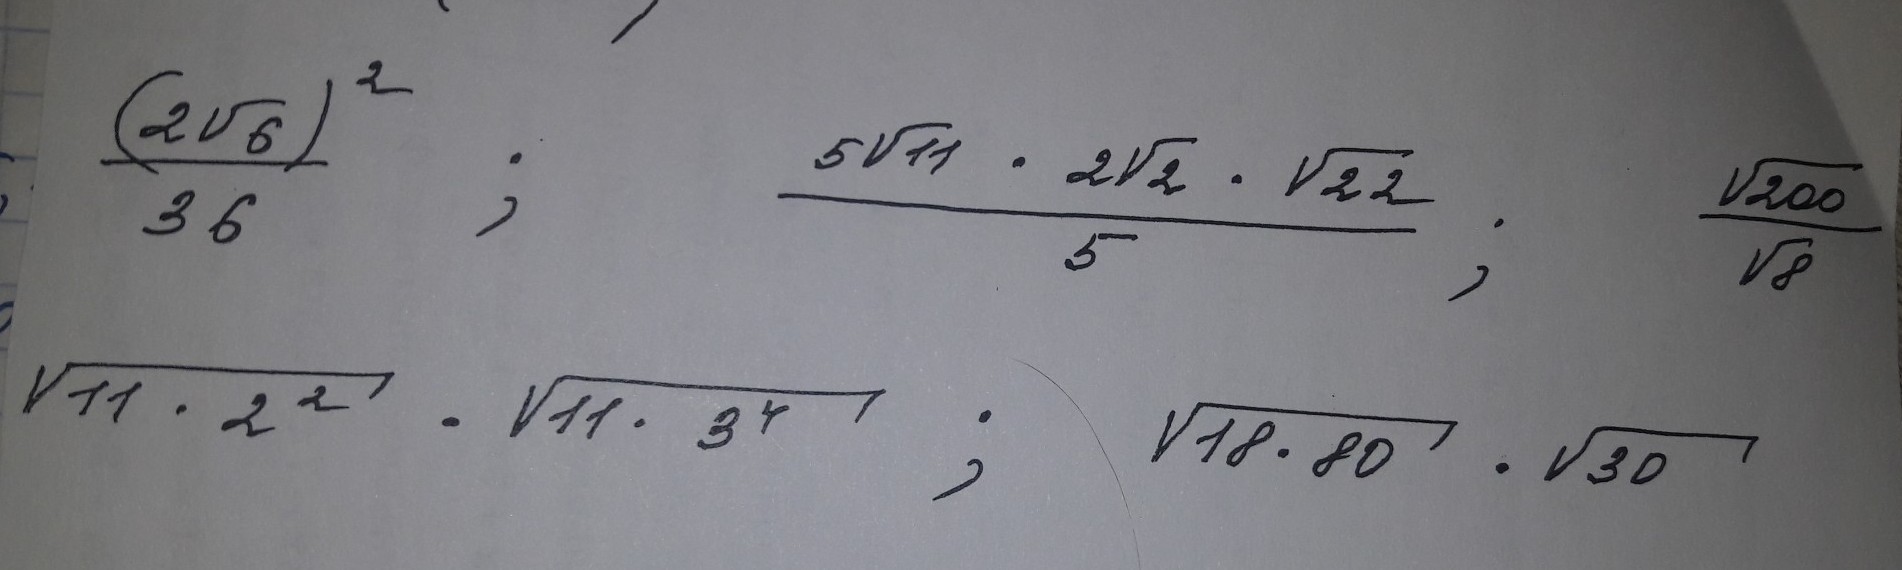 (2√6)² / 36 ; 5√11 · 2√2 · √22 / 5 ; √200 / √8
√11 · 2² · √11 · 3⁴ ; √18 · 80 · √30